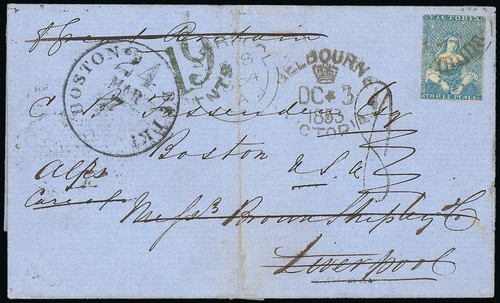 p Great Britain
BOSTON
24
MAR
BR. PKT
19
CENTS
MELBOURNE
DC * 3
1853
VICTORIA
VICTORIA
THREE PENCE
C. B. Fessenden Esq
Boston
U.S.A
Care of Messrs Brown Shipley & Co
Liverpool